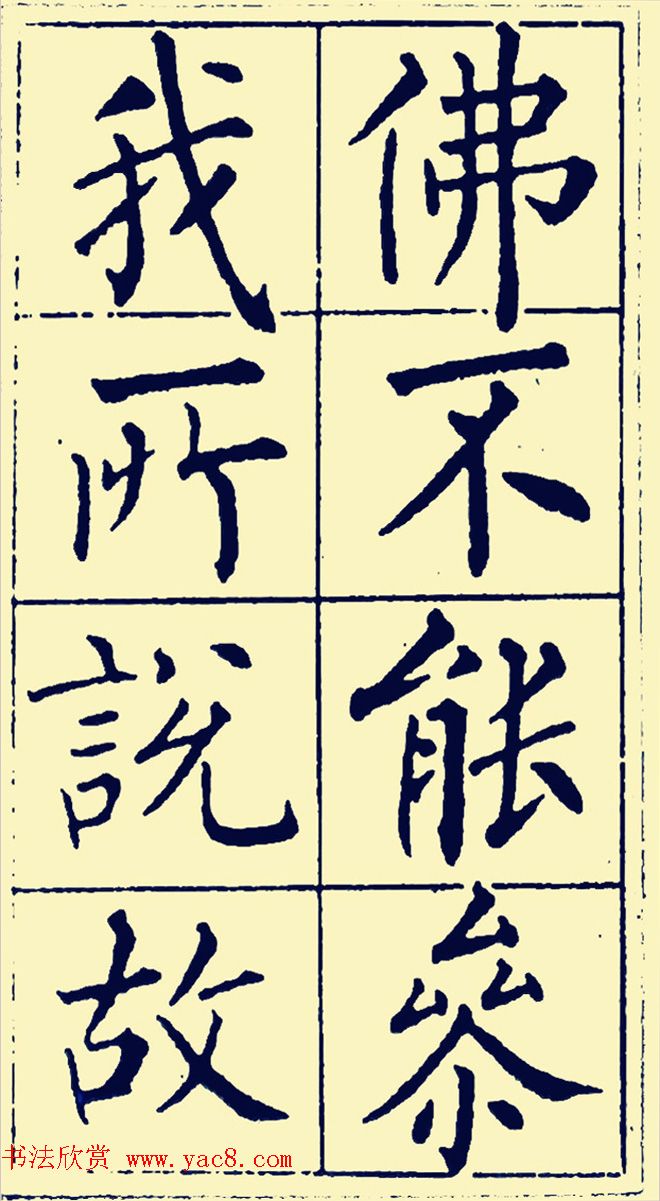 佛不能參
我所說故
书法欣赏 www.yac8.com